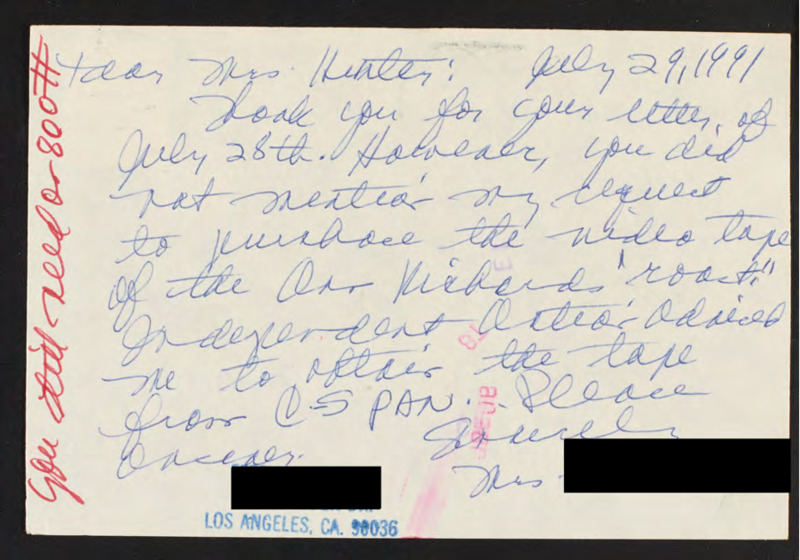 Dear Mrs. Hunter: July 29, 1991
Thank you for your letter of
July 28th. However, you did
not mention my request
to purchase the video tape
of the Ann Richards "roast."
Independent Action advised
me to obtain the tape
from C-SPAN. Please
answer. Sincerely
Mrs.
LOS ANGELES, CA. 90036
You still need an 800#